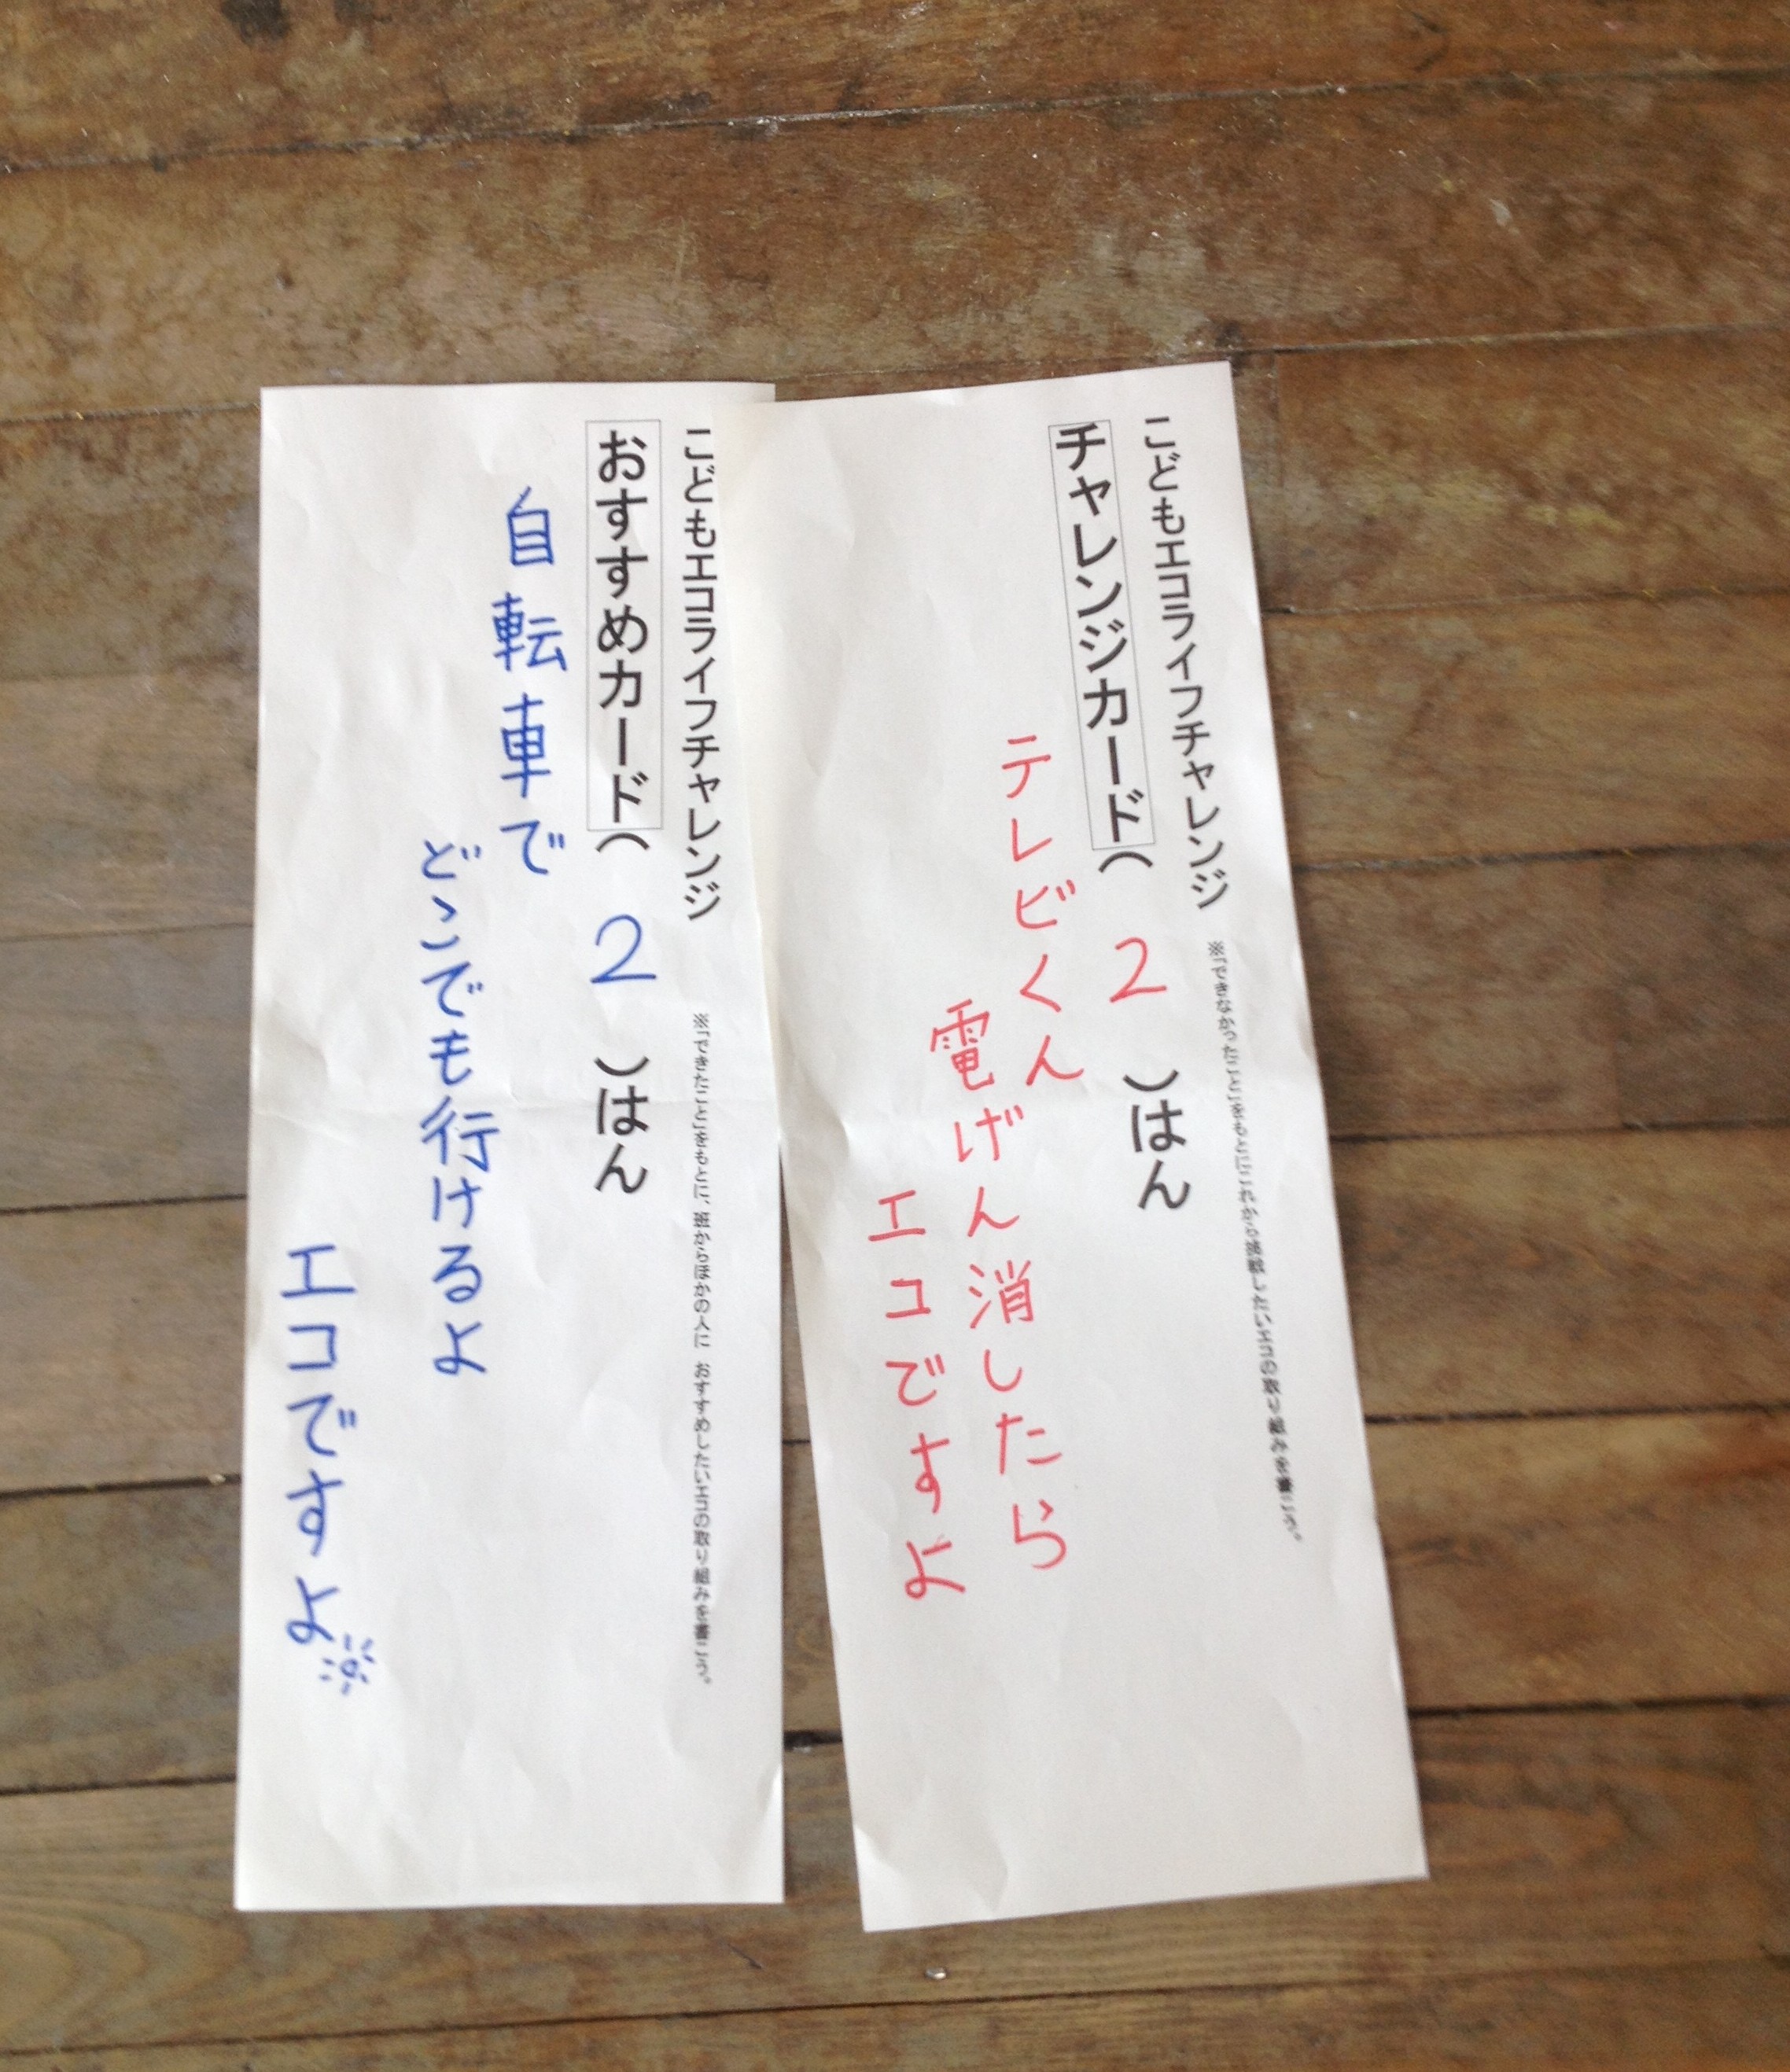 こどもエコライフチャレンジ
※「できなかったこと」をもとにこれから挑戦したいエコの取り組みを書こう。
チャレンジカード( 2 )はん
テレビくん
電げん消したら
エコですよ
こどもエコライフチャレンジ
※「できたこと」をもとに、班からほかの人に おすすめしたいエコの取り組みを書こう。
おすすめカード( 2 )はん
自転車で
どこでも行けるよ
エコですよ